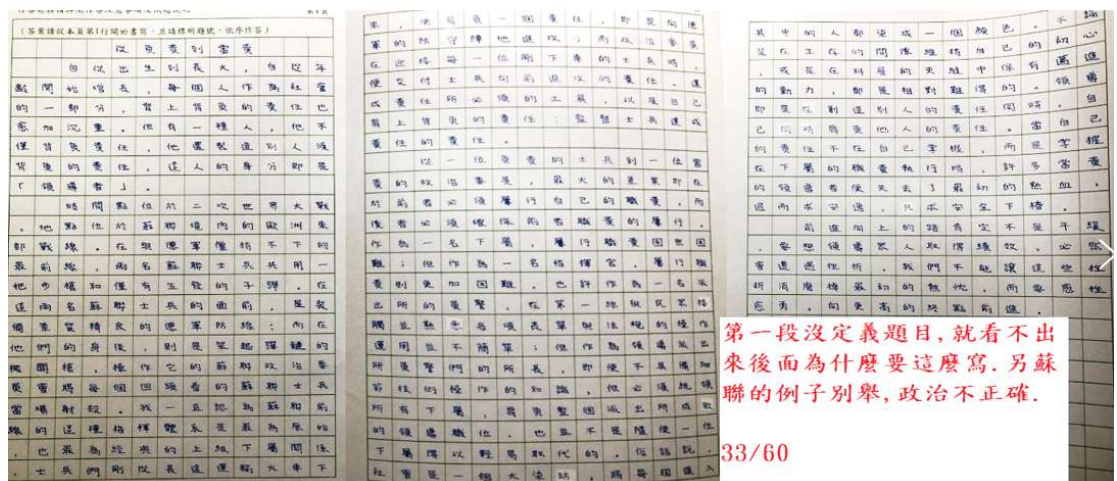 (答案請從本頁第1行開始書寫,並請標明題號,依序作答)
從負責到當責
自從出生到長大,自從年
齡開始增長,每個人作為社會
的一部分,背上背負的責任也
愈加沉重。但有一種人,他不
僅背負責任,他還製造別人須
背負的責任,這人的身分即是
「領導者」。
時間點位於二次世界大戰
,地點位於蘇聯境內的歐洲東
部戰線。在與德軍僵持不下的
最前線,兩名蘇聯士兵共用一
把步槍和僅有五發的子彈。在
這兩名蘇聯士兵的面前,是裝
備素質精良的德軍防線;而在
他們的身後,則是架起彈鏈的
機關槍,操作它的蘇聯政治委
員會將每個回頭看的蘇聯士兵
當場射殺。我一直認為蘇聯前
線的這種指揮體系是最為原始
,也最為經典的上級下屬關係
。士兵們剛從長途運輸火車下
來,便背負一個責任,即是向德
軍的防守陣地進攻;而政治委員
在迎接每一位剛下車的士兵時,
便交付士兵向前進攻的責任、達
成責任所必須的工具,以及自己
背上背負的責任:監督士兵達成
責任的責任。
從一位負責的士兵到一位當
責的政治委員,最大的差異即在
於前者必須履行自己的職責,而
後者必須確保前者職責的履行。
作為一名下屬,履行職責固然困
難;但作為一名指揮官,履行職
責則更加困難。也許作為一名派
出所的員警,在第一線與民眾接
觸並熟悉各項表單與法規的操作
運用並不簡單;但作為領導派出
所員警們的所長,即便不具備細
節技術操作的知識,但必須統領
所有下屬,肩負整個派出所成敗
的領導職位,也並不是隨便一位
下屬得以輕易取代的。俗話說,
社會是一個大染缸,將每個進入
其中的人都染成一個顏色。不論
是在工作的間隙維持自己的初心
,或是在科層的束縛中保有邁進
的動力,都是相對難得的。領導
即是在創造別人的責任同時,自
己同時肩負他人的責任。當自己
的責任不在自己掌握,而是掌握
在下屬的職責執行時,許多當責
的領導者便失去了最初的熱血,
退而求安逸,只求安全下樁。
前進向上的路肯定不是平緩
,要想領導眾人取得績效,必然
會遭遇挫折,我們不能讓這些挫
折消磨掉最初的熱忱,而要愈挫
愈勇,向更高的終點前進。
第一段沒定義題目,就看不出
來後面為什麼要這麼寫.另蘇
聯的例子別舉,政治不正確.
33/60